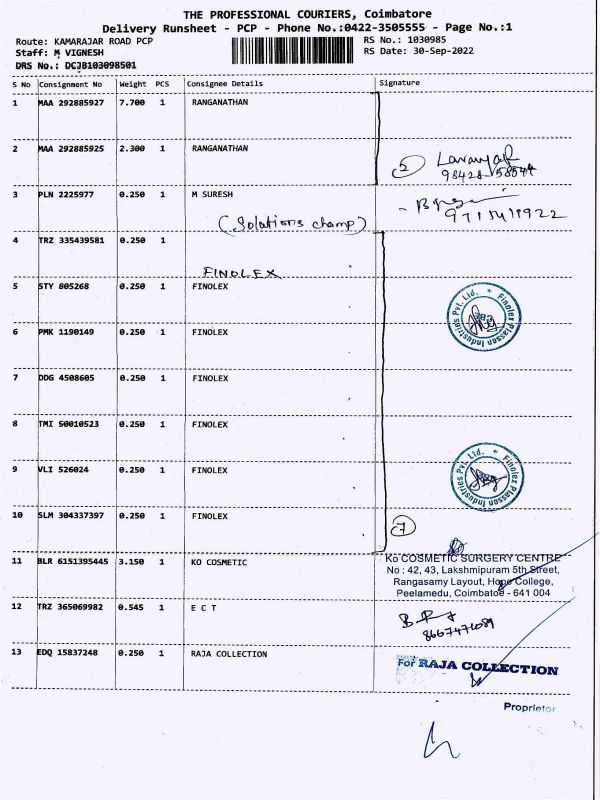 THE PROFESSIONAL COURIERS, Coimbatore
Delivery Runsheet - PCP - Phone No.:0422-3505555 - Page No.:1
Route: KAMARAJAR ROAD PCP RS No.: 1030985
Staff: M VIGNESH RS Date: 30-Sep-2022
DRS No.: DCJB103098501
S No Consignment No Weight PCS Consignee Details Signature
1 MAA 292885927 7.700 1 RANGANATHAN
2 MAA 292885925 2.300 1 RANGANATHAN
2
3 PLN 2225977 0.250 1 M SURESH
(Solutions champ)
4 TRZ 335439581 0.250 1
FINOLEX
5 STY 805268 0.250 1 FINOLEX
Finolex Plasson Industries Pvt. Ltd.
6 PMK 1190149 0.250 1 FINOLEX
7 DDG 4508605 0.250 1 FINOLEX
8 TMI 50010523 0.250 1 FINOLEX
9 VLI 526024 0.250 1 FINOLEX
Finolex Plasson Industries Pvt. Ltd.
10 SLM 304337397 0.250 1 FINOLEX
7
11 BLR 6151395445 3.150 1 KO COSMETIC
Ko COSMETIC SURGERY CENTRE
No : 42, 43, Lakshmipuram 5th Street,
Rangasamy Layout, Hope College,
Peelamedu, Coimbatore - 641 004
12 TRZ 365069982 0.545 1 E C T
13 EDQ 15837248 0.250 1 RAJA COLLECTION
For RAJA COLLECTION
Proprietor